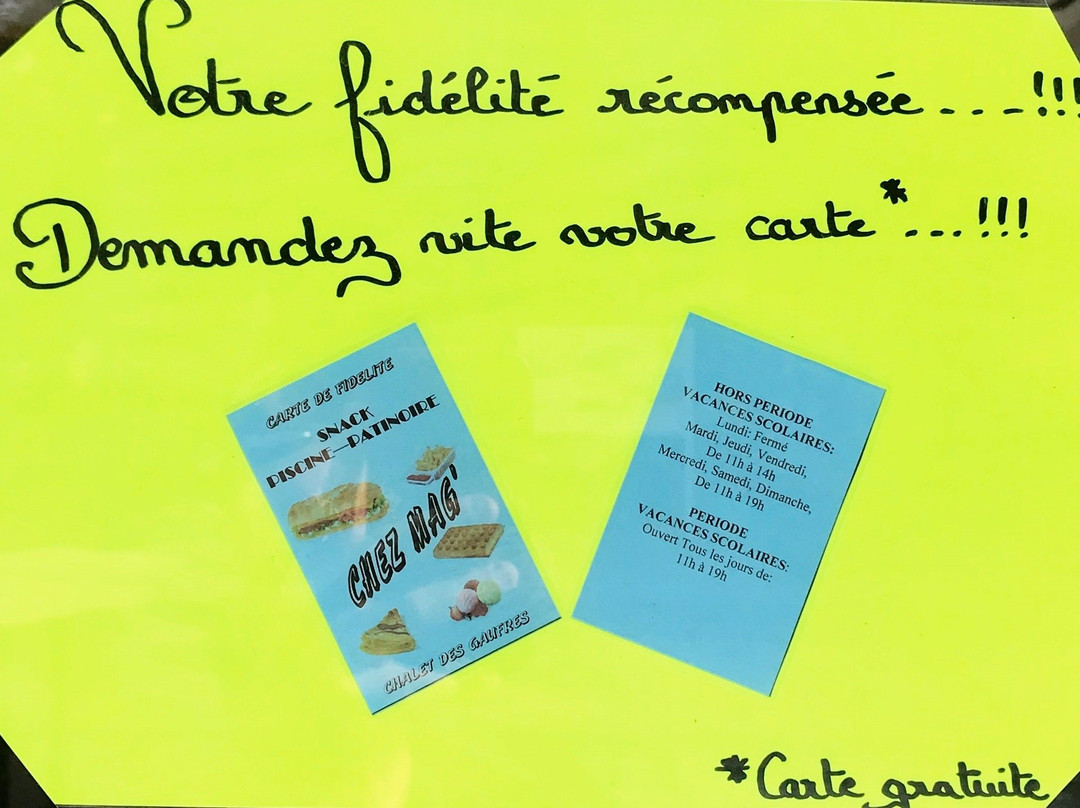 Votre fidélité récompensée....!!!
Demandez vite votre carte*...!!!
CARTE DE FIDELITE
SNACK
PISCINE—PATINOIRE
CHEZ MAG'
CHALET DES GAUFRES
HORS PERIODE
VACANCES SCOLAIRES:
Lundi: Fermé
Mardi, Jeudi, Vendredi,
De 11h à 14h
Mercredi, Samedi, Dimanche,
De 11h à 19h
PERIODE
VACANCES SCOLAIRES:
Ouvert Tous les jours de:
11h à 19h
*Carte gratuite